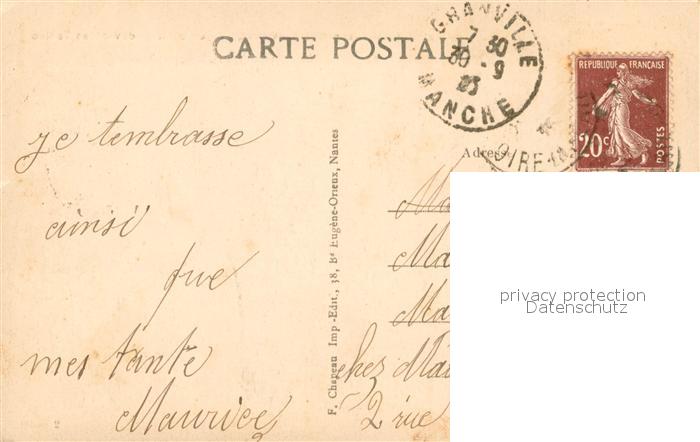 CARTE POSTALE
GRANVILLE
7 30
30 - 9
MANCHE
REPUBLIQUE FRANÇAISE
20c
POSTES
Adresse
je tembrasse
ainsi
que
mes tante
Maurice
F. Chapeau Imp.-Edit., 38, Bd Eugène-Orieux, Nantes
Ma
Ma
Ma
chez Ma
2 rue
privacy protection
Datenschutz